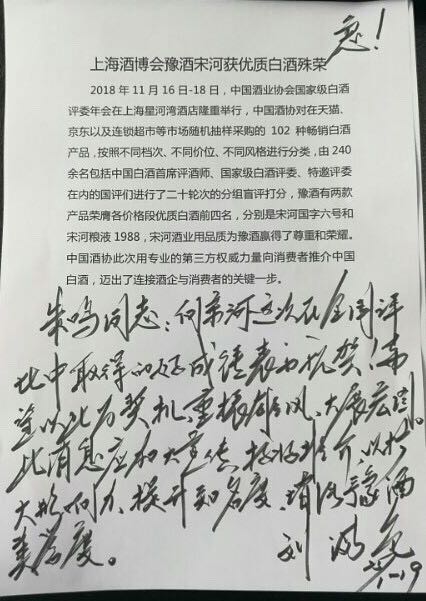 急!
上海酒博会豫酒宋河获优质白酒殊荣
2018 年 11 月 16 日-18 日,中国酒业协会国家级白酒
评委年会在上海星河湾酒店隆重举行,中国酒协对在天猫、
京东以及连锁超市等市场随机抽样采购的 102 种畅销白酒
产品,按照不同档次、不同价位、不同风格进行分类,由 240
余名包括中国白酒首席评酒师、国家级白酒评委、特邀评委
在内的国评们进行了二十轮次的分组盲评打分,豫酒有两款
产品荣膺各价格段优质白酒前四名,分别是宋河国字六号和
宋河粮液 1988,宋河酒业用品质为豫酒赢得了尊重和荣耀。
中国酒协此次用专业的第三方权威力量向消费者推介中国
白酒,迈出了连接酒企与消费者的关键一步。
朱鸣同志:向宋河这次在全国评
比中取得的好成绩表示祝贺!希
望以此为契机,重振雄风、大展宏图。
此消息应加大宣传,推介,以扩
大影响力、提升知名度、豫酒
美誉度。
刘满
11-19